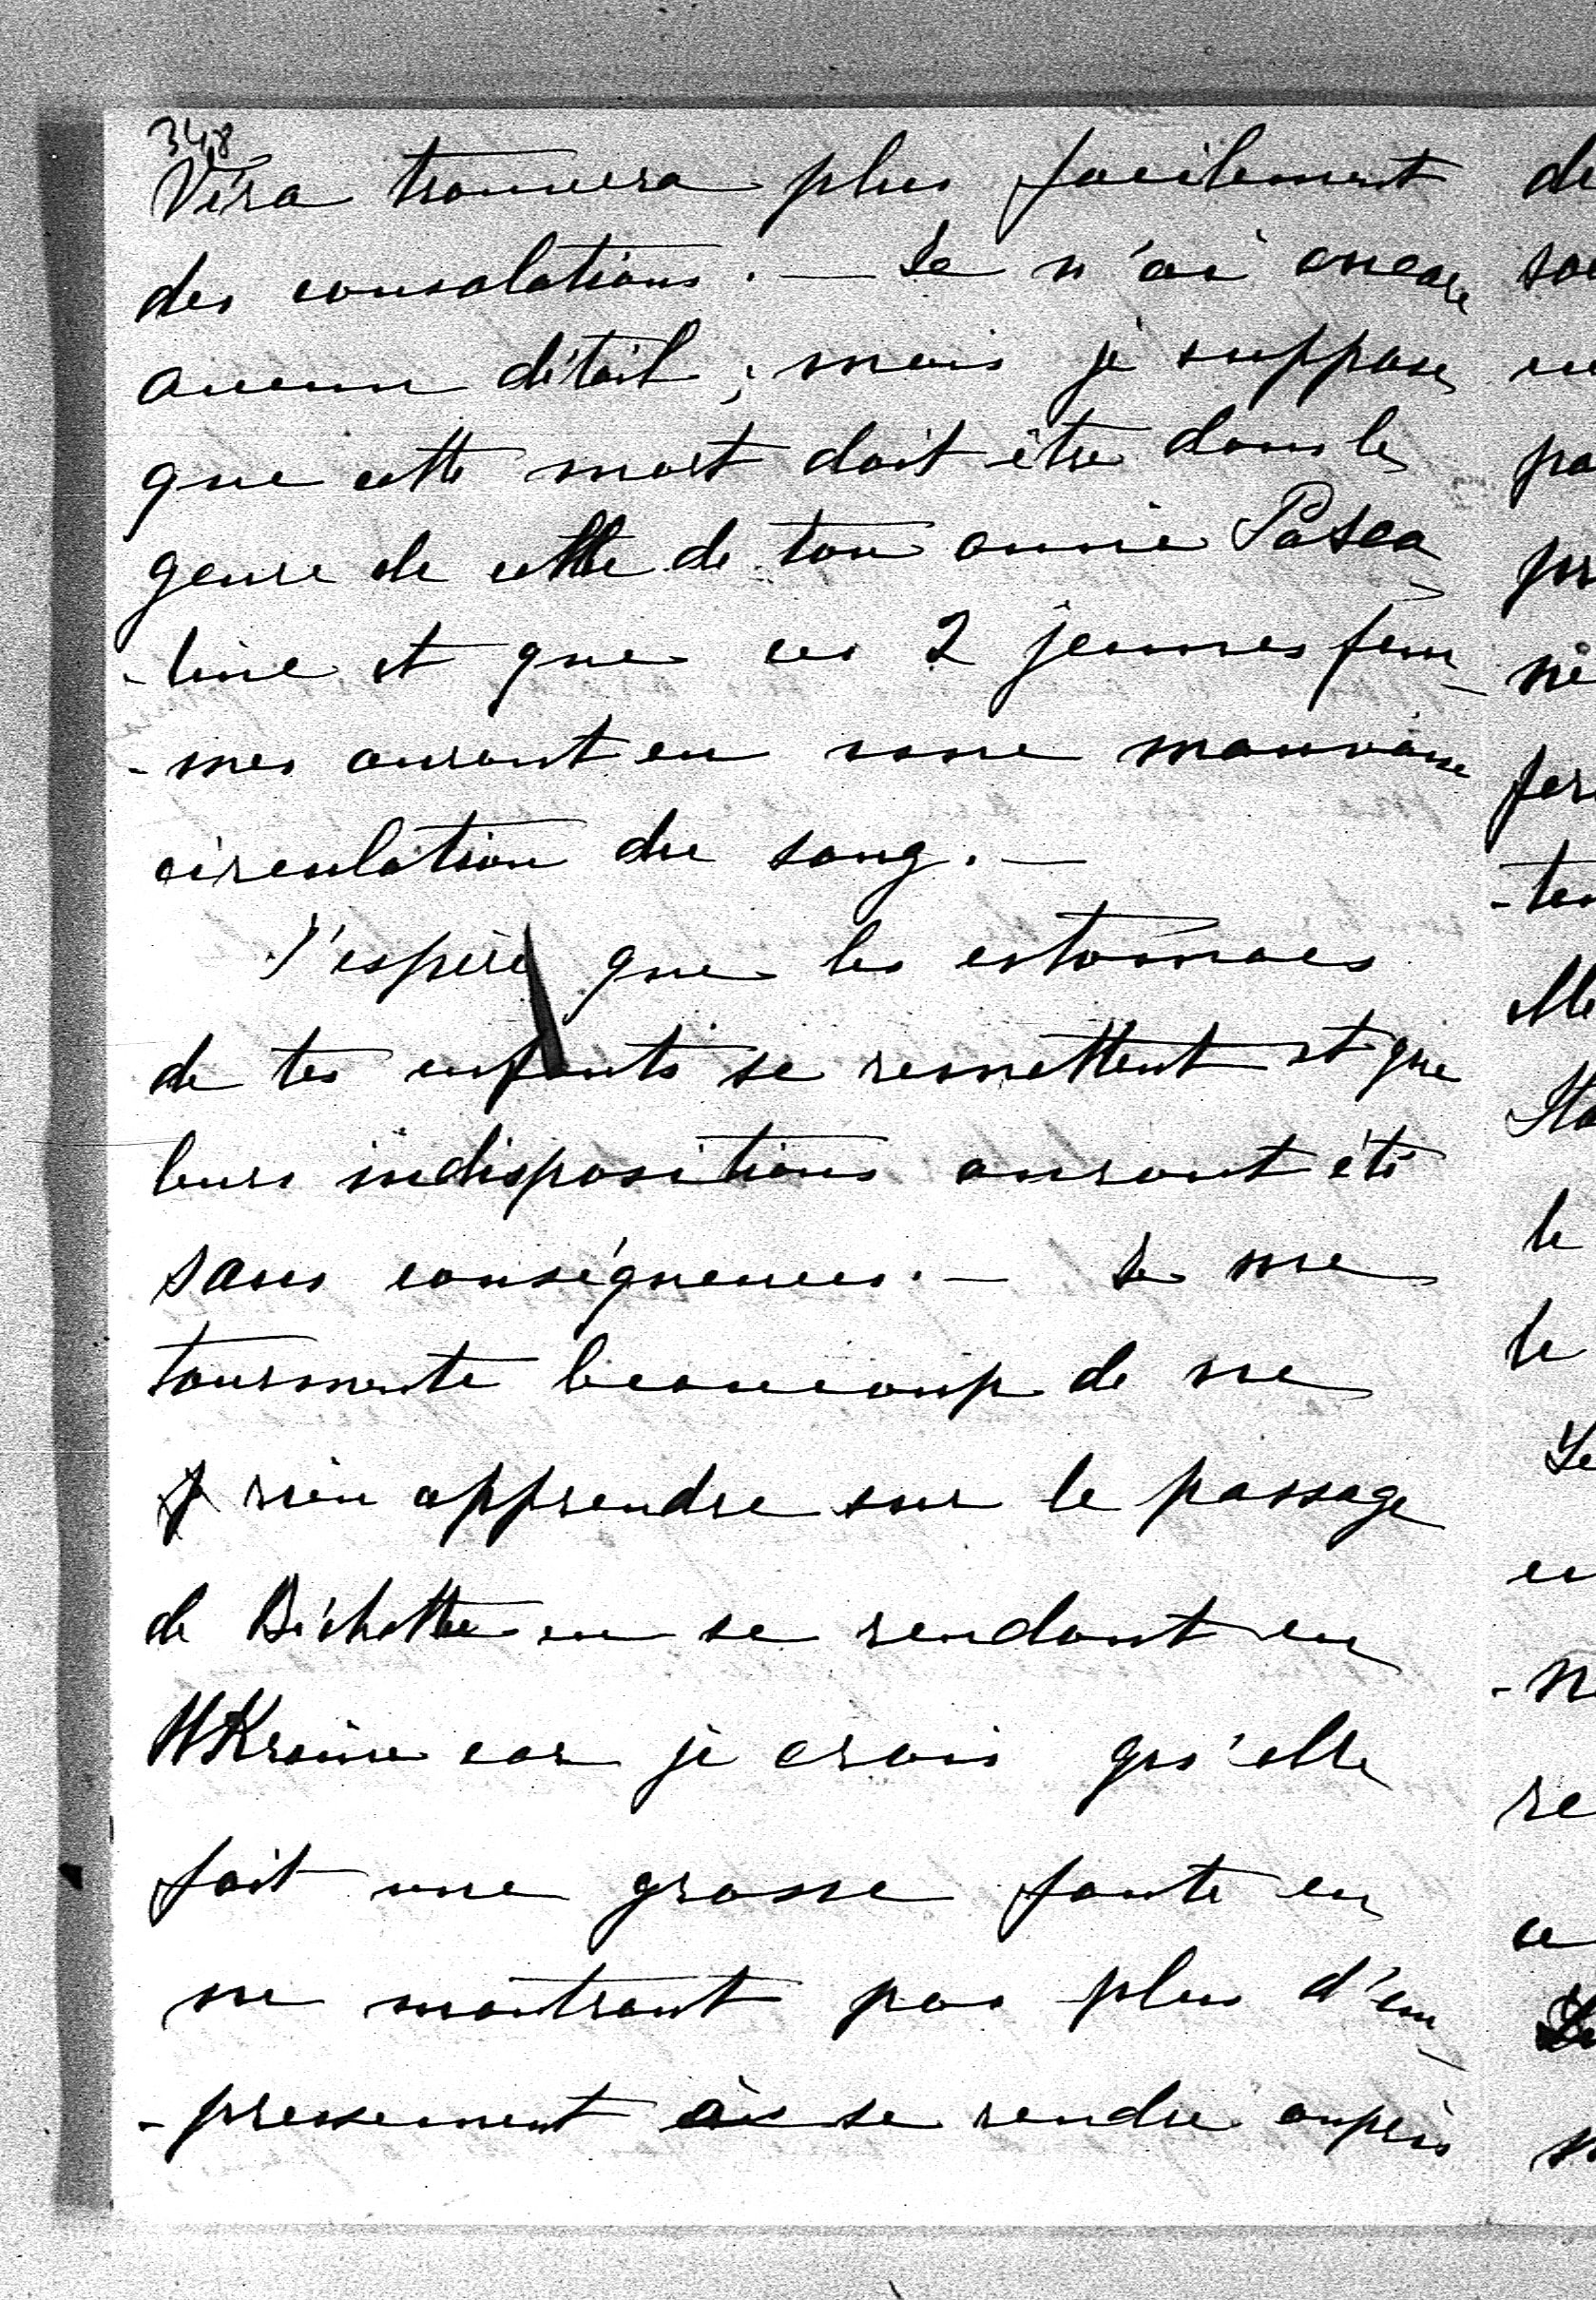 348
Véra trouvera plus facilement
des consolations. — Je n'ai encore
aucun détail ; mais je suppose
que cette mort doit être dans le
genre de celle de ton amie Pasca-
-line et que ces 2 jeunes fem-
-mes auront eu une mauvaise
circulation du sang. —
J'espère que les estomacs
de tes enfants se remettent et que
leurs indispositions auront été
sans conséquences. — Je me
tourmente beaucoup de ne
rien apprendre sur le passage
de Bichette en se rendant en
Ukraine car je crois qu'elle
fait une grosse faute en
ne montrant pas plus d'em-
-pressement à se rendre auprès